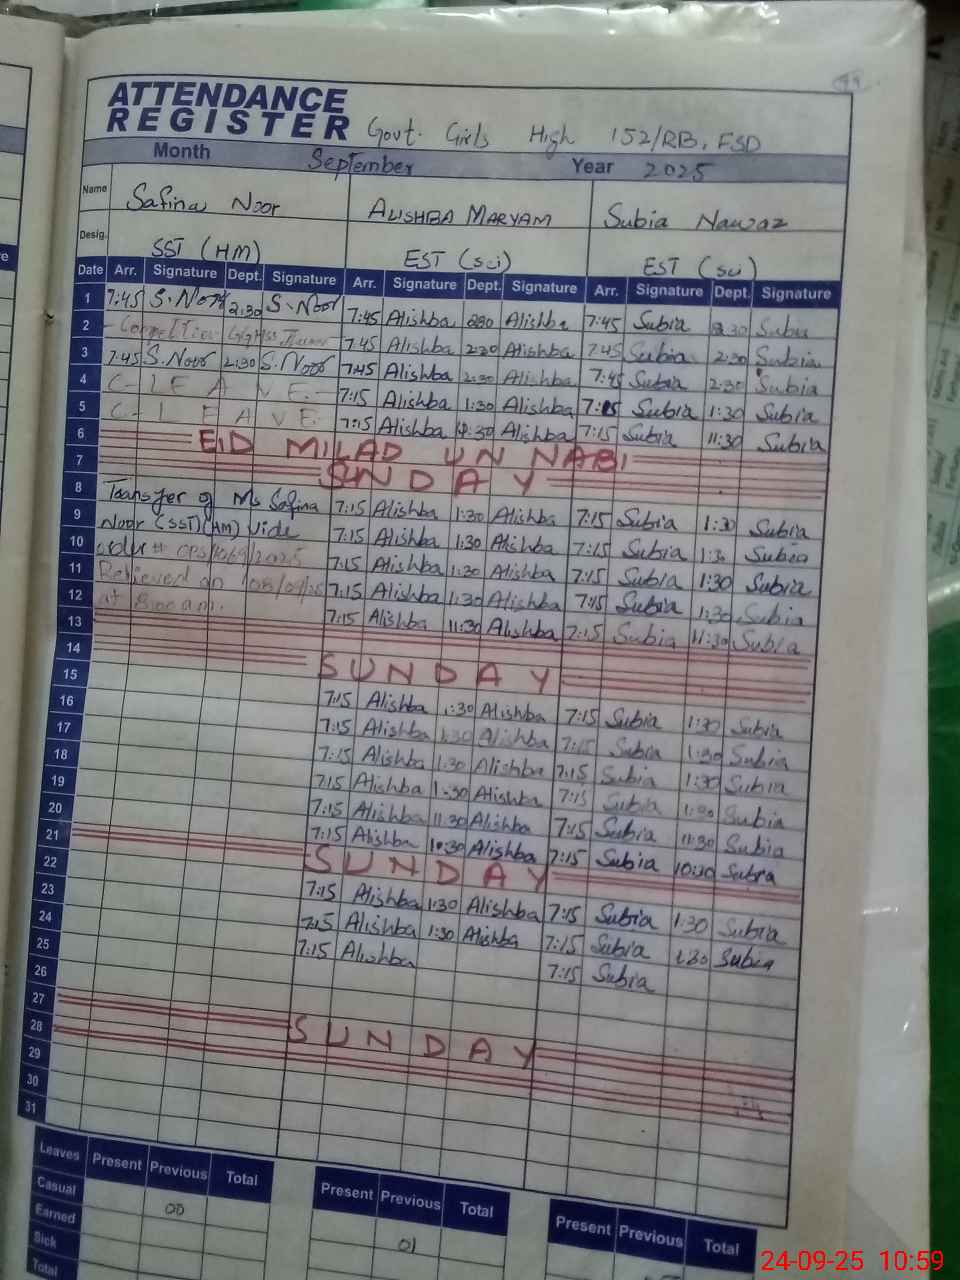 ATTENDANCE
REGISTER Govt. Girls High 152/RB, FSD
Month September Year 2025
Name Safina Noor ALISHBA MARYAM Subia Nawaz
Desig. SST (HM) EST (sci) EST (sci)
Date Arr. Signature Dept. Signature Arr. Signature Dept. Signature Arr. Signature Dept. Signature
1 7:45 S.Noor 2:30 S.Noor 7:45 Alishba 2:30 Alishba 7:45 Subia 2:30 Subia
2 Competition 7:45 Alishba 2:30 Alishba 7:45 Subia 2:30 Subia
3 7:45 S.Noor 2:30 S.Noor 7:45 Alishba 2:30 Alishba 7:45 Subia 2:30 Subia
4 C-LEAVE 7:15 Alishba 1:30 Alishba 7:15 Subia 1:30 Subia
5 C-LEAVE 7:15 Alishba 11:30 Alishba 7:15 Subia 11:30 Subia
6 EID MILAD UN NABI
7 SUNDAY
8 Transfer of Ms Safina 7:15 Alishba 1:30 Alishba 7:15 Subia 1:30 Subia
9 Noor (SST)(HM) vide 7:15 Alishba 1:30 Alishba 7:15 Subia 1:30 Subia
10 order # 7:15 Alishba 1:30 Alishba 7:15 Subia 1:30 Subia
11 Relieved on 08/09/25 7:15 Alishba 1:30 Alishba 7:15 Subia 1:30 Subia
12 at 8:00 am. 7:15 Alishba 11:30 Alishba 7:15 Subia 11:30 Subia
13
14 SUNDAY
15 7:15 Alishba 1:30 Alishba 7:15 Subia 1:30 Subia
16 7:15 Alishba 1:30 Alishba 7:15 Subia 1:30 Subia
17 7:15 Alishba 1:30 Alishba 7:15 Subia 1:30 Subia
18 7:15 Alishba 1:30 Alishba 7:15 Subia 1:30 Subia
19 7:15 Alishba 11:30 Alishba 7:15 Subia 11:30 Subia
20 7:15 Alishba 10:30 Alishba 7:15 Subia 10:30 Subia
21 SUNDAY
22 7:15 Alishba 1:30 Alishba 7:15 Subia 1:30 Subia
23 7:15 Alishba 1:30 Alishba 7:15 Subia 1:30 Subia
24 7:15 Alishba 7:15 Subia
25
26
27
28 SUNDAY
29
30
31
Leaves Present Previous Total Present Previous Total Present Previous Total
Casual 00 01
Earned
Sick
Total
24-09-25 10:59